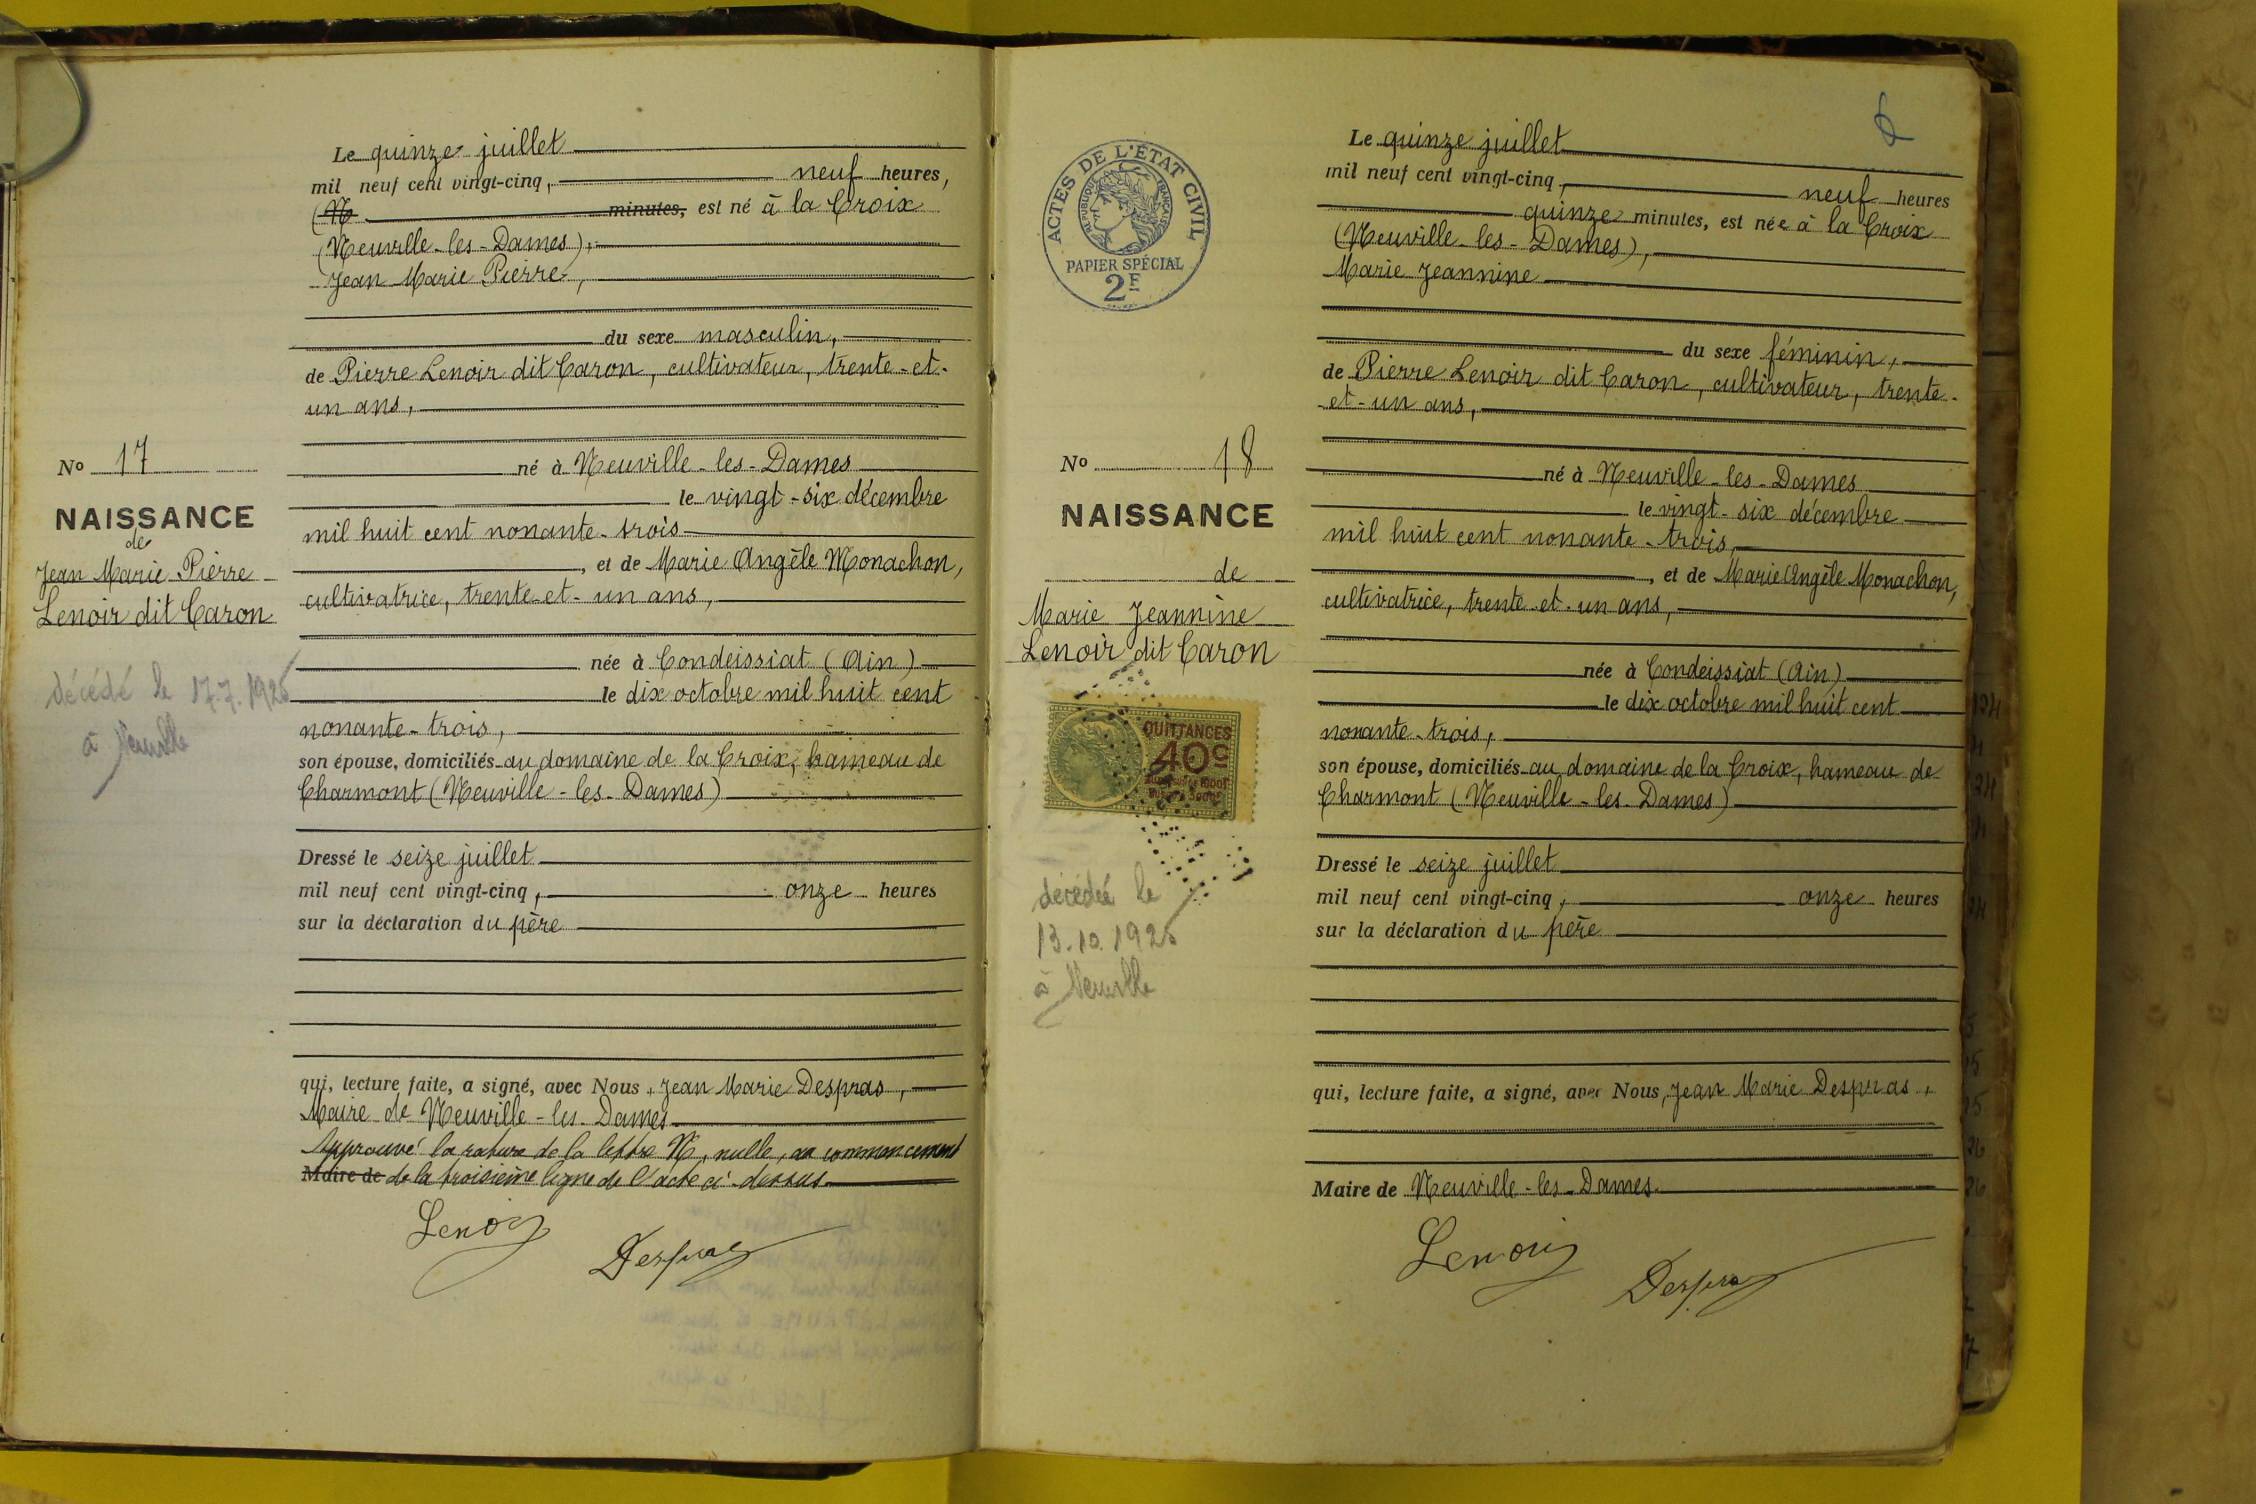 Le quinze juillet
mil neuf cent vingt-cinq, neuf heures,
(N minutes, est né à la Croix
(Neuville-les-Dames),
Jean Marie Pierre,
du sexe masculin,
de Pierre Lenoir dit Caron, cultivateur, trente-et-
un ans,
né à Neuville-les-Dames
le vingt-six décembre
mil huit cent nonante-trois
, et de Marie Angèle Monachon,
cultivatrice, trente-et-un ans,
née à Condeissiat (Ain)
le dix octobre mil huit cent
nonante-trois,
son épouse, domiciliés au domaine de la Croix, hameau de
Charmont (Neuville-les-Dames)
Dressé le seize juillet
mil neuf cent vingt-cinq, onze heures
sur la déclaration du père
qui, lecture faite, a signé, avec Nous, Jean Marie Despras,
Maire de Neuville-les-Dames
Approuvé la rature de la lettre N, nulle, au commencement
Maire de de la troisième ligne de l'acte ci-dessus
Lenoir
Despras
No 17
NAISSANCE
de
Jean Marie Pierre
Lenoir dit Caron
décédé le 17.7.1925
à Neuville
6
ACTES DE L'ÉTAT CIVIL
RÉPUBLIQUE FRANÇAISE
PAPIER SPÉCIAL
2F
No 18
NAISSANCE
de
Marie Jeannine
Lenoir dit Caron
QUITTANCES
40c
décédée le
13.10.1925
à Neuville
Le quinze juillet
mil neuf cent vingt-cinq, neuf heures
quinze minutes, est née à la Croix
(Neuville-les-Dames),
Marie Jeannine
du sexe féminin,
de Pierre Lenoir dit Caron, cultivateur, trente-
-et-un ans,
né à Neuville-les-Dames
le vingt-six décembre
mil huit cent nonante-trois,
, et de Marie Angèle Monachon,
cultivatrice, trente-et-un ans,
née à Condeissiat (Ain)
le dix octobre mil huit cent
nonante-trois,
son épouse, domiciliés au domaine de la Croix, hameau de
Charmont (Neuville-les-Dames)
Dressé le seize juillet
mil neuf cent vingt-cinq, onze heures
sur la déclaration du père
qui, lecture faite, a signé, avec Nous, Jean Marie Despras,
Maire de Neuville-les-Dames.
Lenoir
Despras